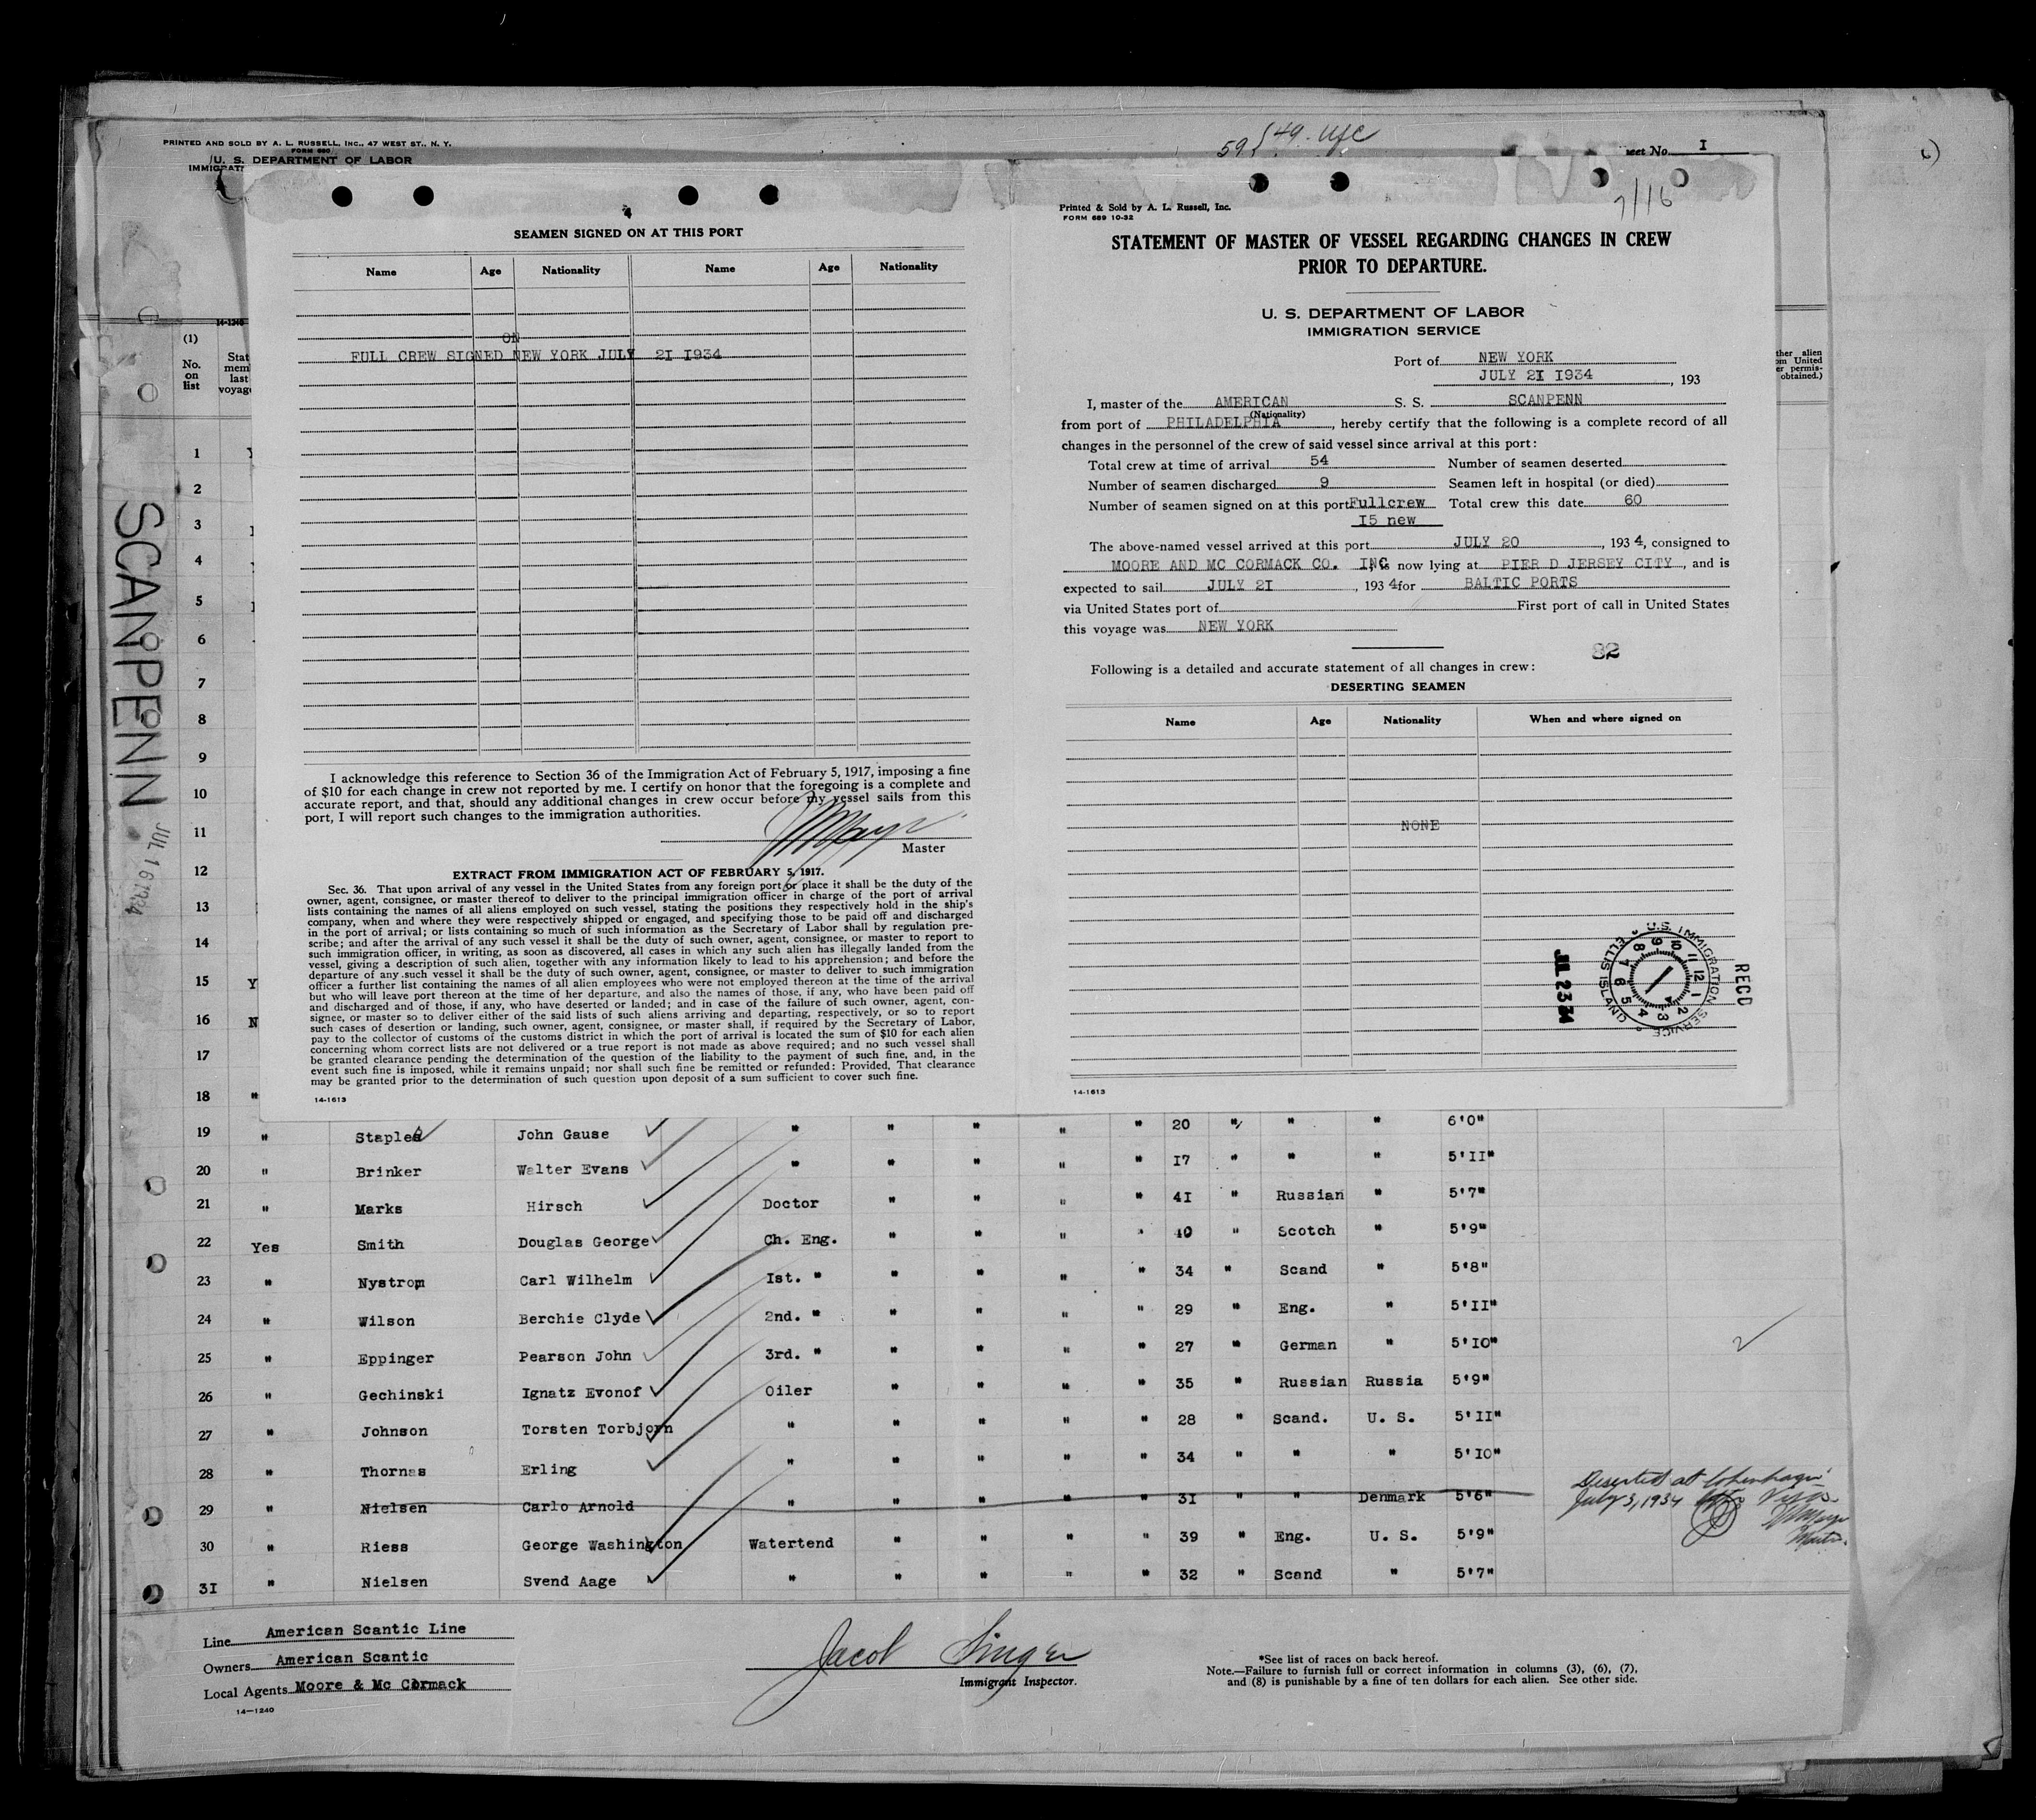 PRINTED AND SOLD BY A. L. RUSSELL, INC., 47 WEST ST., N. Y.
FORM 680
U. S. DEPARTMENT OF LABOR
IMMIGRAT
59
49
eet No. I
7/16
(1)
No.
on
list
14-1240
Stat
mem
last
voyage
ther alien
om United
er permis-
obtained.)
SCANPENN
JUL 16 1934
4
SEAMEN SIGNED ON AT THIS PORT
Name Age Nationality Name Age Nationality
ON
FULL CREW SIGNED NEW YORK JULY 2I I934
I acknowledge this reference to Section 36 of the Immigration Act of February 5, 1917, imposing a fine
of $10 for each change in crew not reported by me. I certify on honor that the foregoing is a complete and
accurate report, and that, should any additional changes in crew occur before my vessel sails from this
port, I will report such changes to the immigration authorities.
Master
EXTRACT FROM IMMIGRATION ACT OF FEBRUARY 5, 1917.
Sec. 36. That upon arrival of any vessel in the United States from any foreign port or place it shall be the duty of the
owner, agent, consignee, or master thereof to deliver to the principal immigration officer in charge of the port of arrival
lists containing the names of all aliens employed on such vessel, stating the positions they respectively hold in the ship's
company, when and where they were respectively shipped or engaged, and specifying those to be paid off and discharged
in the port of arrival; or lists containing so much of such information as the Secretary of Labor shall by regulation pre-
scribe; and after the arrival of any such vessel it shall be the duty of such owner, agent, consignee, or master to report to
such immigration officer, in writing, as soon as discovered, all cases in which any such alien has illegally landed from the
vessel, giving a description of such alien, together with any information likely to lead to his apprehension; and before the
departure of any such vessel it shall be the duty of such owner, agent, consignee, or master to deliver to such immigration
officer a further list containing the names of all alien employees who were not employed thereon at the time of the arrival
but who will leave port thereon at the time of her departure, and also the names of those, if any, who have been paid off
and discharged and of those, if any, who have deserted or landed; and in case of the failure of such owner, agent, con-
signee, or master so to deliver either of the said lists of such aliens arriving and departing, respectively, or so to report
such cases of desertion or landing, such owner, agent, consignee, or master shall, if required by the Secretary of Labor,
pay to the collector of customs of the customs district in which the port of arrival is located the sum of $10 for each alien
concerning whom correct lists are not delivered or a true report is not made as above required; and no such vessel shall
be granted clearance pending the determination of the question of the liability to the payment of such fine, and, in the
event such fine is imposed, while it remains unpaid; nor shall such fine be remitted or refunded: Provided, That clearance
may be granted prior to the determination of such question upon deposit of a sum sufficient to cover such fine.
14-1613
Printed & Sold by A. L. Russell, Inc.
FORM 689 10-32
STATEMENT OF MASTER OF VESSEL REGARDING CHANGES IN CREW
PRIOR TO DEPARTURE.
U. S. DEPARTMENT OF LABOR
IMMIGRATION SERVICE
Port of NEW YORK
JULY 2I I934, 193
I, master of the AMERICAN S. S. SCANPENN
(Nationality)
from port of PHILADELPHIA, hereby certify that the following is a complete record of all
changes in the personnel of the crew of said vessel since arrival at this port:
Total crew at time of arrival 54 Number of seamen deserted
Number of seamen discharged 9 Seamen left in hospital (or died)
Number of seamen signed on at this port Fullcrew Total crew this date 60
I5 new
The above-named vessel arrived at this port JULY 20, 193 4, consigned to
MOORE AND MC CORMACK CO. INC is now lying at PIER D JERSEY CITY, and is
expected to sail JULY 2I, 193 4 for BALTIC PORTS
via United States port of First port of call in United States
this voyage was NEW YORK
82
Following is a detailed and accurate statement of all changes in crew:
DESERTING SEAMEN
Name Age Nationality When and where signed on
NONE
U.S. IMMIGRATION SERVICE ELLIS ISLAND
JUL 23 34
RECD
14-1613
1
2
3
4
5
6
7
8
9
10
11
12
13
14
15 Y
16 N
17
18 "
19 " Staples John Gause " " " " " 20 " " " 6'0"
20 " Brinker Walter Evans " " " " " I7 " " " 5'II"
21 " Marks Hirsch Doctor " " " " 4I " Russian " 5'7"
22 Yes Smith Douglas George Ch. Eng. " " " " 40 " Scotch " 5'9"
23 " Nystrom Carl Wilhelm Ist. " " " " " 34 " Scand " 5'8"
24 " Wilson Berchie Clyde 2nd. " " " " " 29 " Eng. " 5'II"
25 " Eppinger Pearson John 3rd. " " " " " 27 " German " 5'IO"
26 " Gechinski Ignatz Evonof Oiler " " " " 35 " Russian Russia 5'9"
27 " Johnson Torsten Torbjorn " " " " " 28 " Scand. U. S. 5'II"
28 " Thornas Erling " " " " " 34 " " " 5'IO"
29 " Nielsen Carlo Arnold " " " " " 3I " " Denmark 5'6"
Deserted at Copenhagen
July 3, 1934
30 " Riess George Washington Watertend " " " " 39 " Eng. U. S. 5'9"
3I " Nielsen Svend Aage " " " " " 32 " Scand " 5'7"
Line American Scantic Line
Owners American Scantic
Local Agents Moore & Mc Cormack
14-1240
Jacob Singer
Immigrant Inspector.
*See list of races on back hereof.
Note.—Failure to furnish full or correct information in columns (3), (6), (7),
and (8) is punishable by a fine of ten dollars for each alien. See other side.